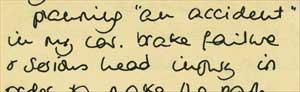 planning "an accident"
in my car. brake failure
& serious head injury in
order to make the path